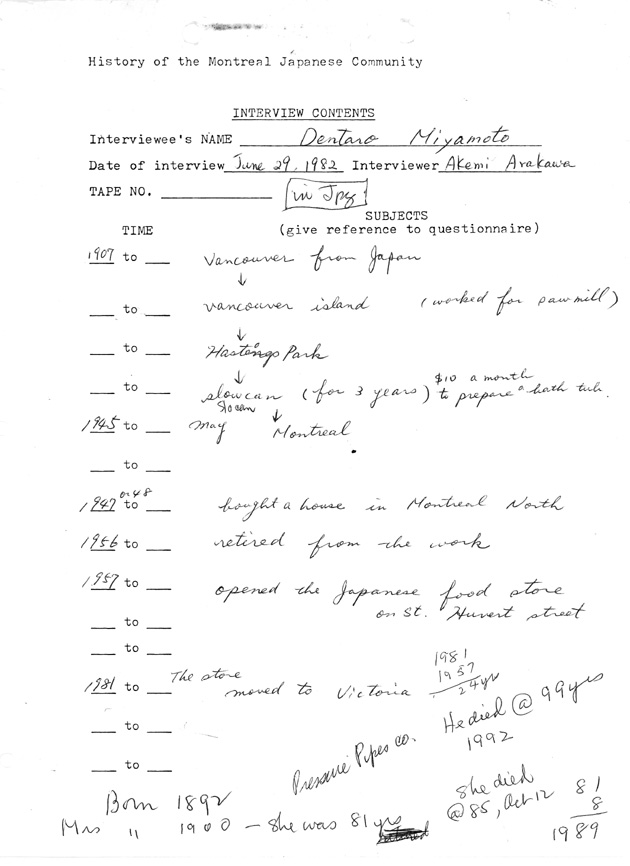 History of the Montreal Japanese Community
INTERVIEW CONTENTS
Interviewee's NAME Dentaro Miyamoto
Date of interview June 29, 1982 Interviewer Akemi Arakawa
TAPE NO. ________ in Jpz
SUBJECTS
TIME (give reference to questionnaire)
1907 to ___ Vancouver from Japan
↓
___ to ___ Vancouver island (worked for sawmill)
↓
___ to ___ Hastings Park
↓ $10 a month
___ to ___ slowcan (for 3 years) to prepare a bath tub.
Slocan ↓
1945 to ___ May Montreal
___ to ___
or 48
1947 to ___ bought a house in Montreal North
1956 to ___ retired from the work
1957 to ___ opened the Japanese food store
on St. Huvert street
___ to ___
___ to ___
1981
1957
24yrs
1981 to ___ The store moved to Victoria
___ to ___
___ to ___
Pressure Pipes co.
He died @ 99yrs
1992
Born 1892
Mrs " 1900 - she was 81 yrs
she died
@ 85, Oct 12
81
8
1989